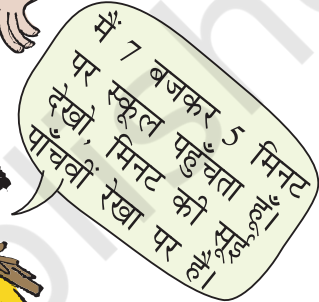 मैं 7 बजकर 5 मिनट
पर स्कूल पहुँचता हूँ।
देखो, मिनट की सुई
पाँचवीं रेखा पर है।